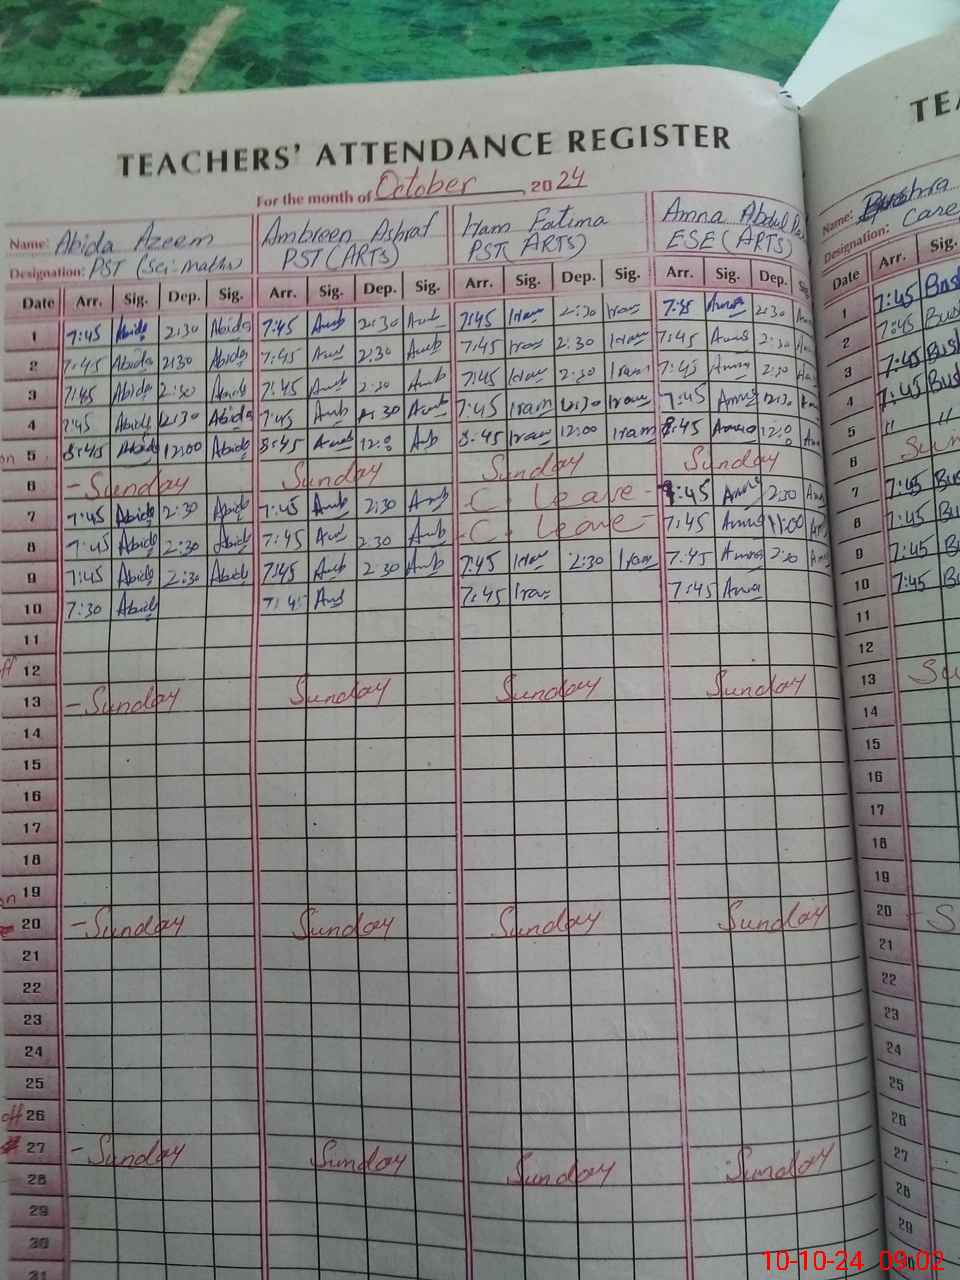 TEACHERS' ATTENDANCE REGISTER
TEA
For the month of October 2024
Name: Abida Azeem Ambreen Ashraf Iram Fatima Amna Abdul Name: Bushra
Designation: PST (Sci-Math) PST (ARTS) PST (ARTS) ESE (ARTS) Designation: Care
Date Arr. Sig. Dep. Sig. Arr. Sig. Dep. Sig. Arr. Sig. Dep. Sig. Arr. Sig. Dep. Date Arr. Sig.
1 7:45 Abida 2:30 Abida 7:45 Amb 2:30 Amb 7:45 Iram 2:30 Iram 7:45 Amna 2:30 1 7:45
2 7:45 Abida 2:30 Abida 7:45 Amb 2:30 Amb 7:45 Iram 2:30 Iram 7:45 Amna 2:30 2 7:45 Bus
3 7:45 Abida 2:30 Abida 7:45 Amb 2:30 Amb 7:45 Iram 2:30 Iram 7:45 Amna 2:30 3 7:45 Bus
4 7:45 Abida 2:30 Abida 7:45 Amb 2:30 Amb 7:45 Iram 2:30 Iram 7:45 Amna 12:30 4 7:45 Bus
on 5 8:45 Abida 12:00 Abida 8:45 Amb 12:0 Amb 8:45 Iram 12:00 Iram 8:45 Amna 12:0 5 " "
6 - Sunday Sunday Sunday Sunday 6 Sun
7 7:45 Abida 2:30 Abida 7:45 Amb 2:30 Amb - C. Leave - 7:45 Amna 2:30 7 7:45 Bus
8 7:45 Abida 2:30 Abida 7:45 Amb 2:30 Amb - C. Leave - 7:45 Amna 11:00 8 7:45 Bu
9 7:45 Abida 2:30 Abida 7:45 Amb 2:30 Amb 7:45 Iram 2:30 Iram 7:45 Amna 2:30 9 7:45 B
10 7:30 Abida 7:45 Amb 7:45 Iram 7:45 Amna 10 7:45 B
11 11
off 12 12
13 - Sunday Sunday Sunday Sunday 13 Su
14 14
15 15
16 16
17 17
18 18
on 19 19
20 - Sunday Sunday Sunday Sunday 20 - S
21 21
22 22
23 23
24 24
25 25
off 26 26
27 - Sunday Sunday Sunday Sunday 27
28 28
29 29
30
31
10-10-24 09:02